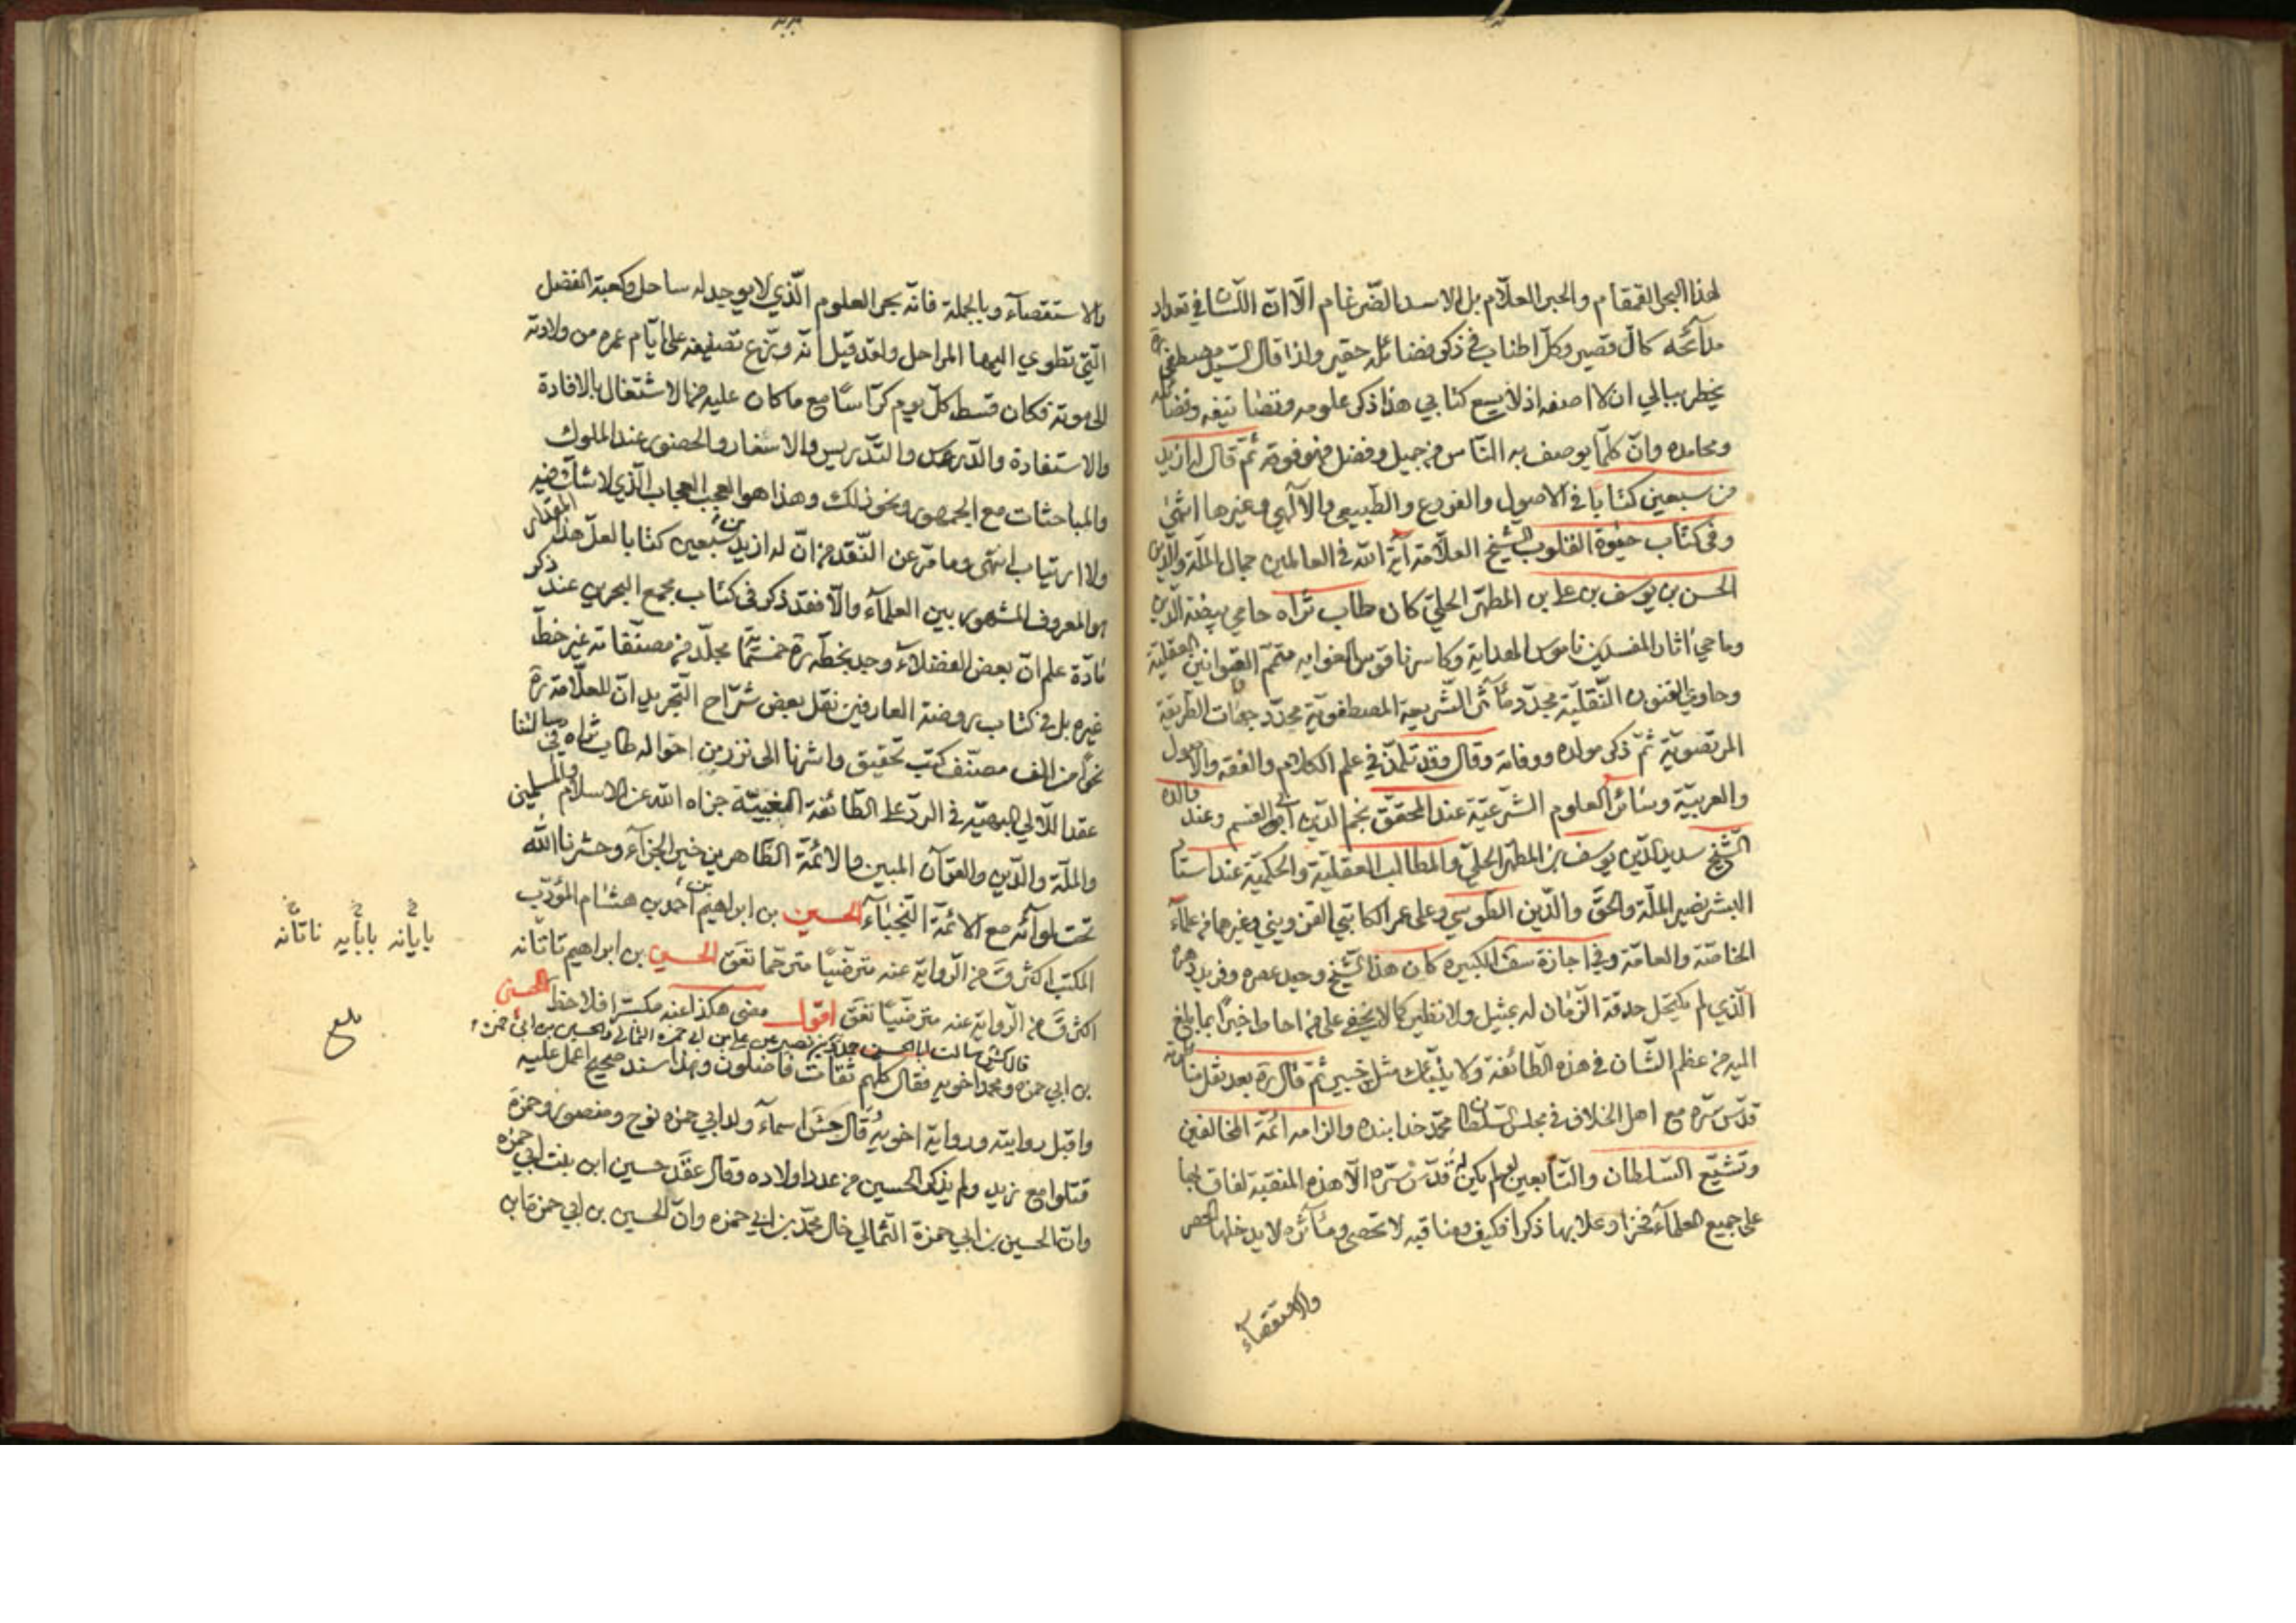 لهذا البحر القمقام والحبر العلّام بل الاسد الضّرغام الّا انّ اللّسان في تعداد
مدائحه كالّ قصير وكلّ اطناب في ذكر فضائله حقير ولذا قال السّيّد مصطفى ره
يخطر ببالي ان لا اصفه اذ لا يسع كتابي هذا ذكر علومه وتصانيفه وفضائله
ومحامده وانّ كلّما يوصف به النّاس من جميل وفضل فهو فوقه ثمّ قال له ازيد
من سبعين كتابا في الاصول والفروع والطّبيعي والالٓهي وغيرها انتهى
وفي كتاب حيٰوة القلوب الشّيخ العلّامة آية الله في العالمين جمال الملّة والدّين
الحسن بن يوسف بن علي بن المطهّر الحلّيّ كان طاب ثراه حامي بيضة الدّين
وماحي اثار المفسدين ناموس الهداية وكاسر ناقوس الغوايه متمّم القوانين العقليّة
وحاوي الفنون النّقليّة مجدّد مآثر الشّريعة المصطفويّة محدّد جهات الطّريقة
المرتضويّة ثمّ ذكر مولده ووفاته وقال وقد تلمّذ في علم الكلام والفقه والاصول
والعربيّة وسائر العلوم الشّرعيّة عند المحقّق نجم الدّين ابي القسم وعند والده
الشّيخ سديد الدّين يوسف بن المطهّر الحلّي والمطالب العقليّة والحكميّة عند استاد
البشر نصير الملّة والحقّ والدّين الطّوسي وعلي عمر الكاتبي القزويني وغيرهما من علمآء
الخاصّة والعامّة وفي اجازة سقف الكبيره كان هذا الشّيخ وحيد عصره وفريد دهره
الّذي لم يكتحل حدقة الزّمان له بمثيل ولا نظير كما لا يخفى على من احاط خبرا بما بلغ
اليه من عظم الشّان في هذه الطّائفة ولا ينبّئك مثل خبير ثمّ قال ره بعد نقل مناظرته
قدّس سرّه مع اهل الخلاف في مجلس السّلطان محمّد خدا بنده والزامه ائمّة المخالفين
وتشيّع السّلطان والتّابعين لو لم يكن له قدّس سرّه الّا هذه المنقبة لفاق بها
على جميع العلمآء فخرا وعلا بها ذكرا فكيف ومناقبه لا تحصى ومآثره لا يدخلها الحصر
والاستقصآء
والاستقصآء وبالجملة فانّه بحر العلوم الّذي لا يوجد له ساحل وكعبة الفضل
الّتي تطوي اليها المراحل ولقد قيل انّه وزّع تصنيفه على ايّام عمره من ولادته
الى موته فكان قسط كلّ يوم كرّاسًا مع ما كان عليه من الاشتغال بالافادة
والاستفادة والدّرس والتّدريس والاسفار والحضور عند الملوك
والمباحثات مع الجمهور ونحو ذلك وهذا هو العجب العجاب الّذي لا شكّ فيه
ولا ارتياب انتهى وما مرّ عن النّقد من انّ له ازيد من سبعين كتابا لعلّ هذا المقدار
هو المعروف المشهور بين العلمآء والّا فقد ذكر في كتاب مجمع البحرين عند ذكر
مادّة علم انّ بعض الفضلآء وجد بخطّه ره خمسمائة مجلّد من مصنّفاته غير خطّ
غيره بل في كتاب روضة العارفين نقل بعض شرّاح التّجريد انّ للعلّامة ره
نحوا من الف مصنّف كتب تحقيق واشرنا الى نزر من احواله طاب ثراه في رسالتنا
عقد اللّآلي البهيّة في الردّ على الطّائفة الغبيّة جزاه الله عن الاسلام والمسلمين
والملّة والدّين والقرآن المبين والائمّة الطّاهرين خير الجزآء وحشرنا الله
تحت لوآئه مع الائمّة النّجبآء الحسين بن ابراهيم بن أحمد بن هشام المؤدّب
المكتب اكثر ق من الرّواية عنه مترضّيًا مترحّما تعق الحسين بن ابراهيم تاتانه
اكثر ق من الرّواية عنه مترضّيًا تعق اقول مضى هكذا عنه مكبّرا فلاحظ الحسين
بن ابي حمزه
قال كش سالت ابا الحسن حمدويه بن نصير عن علي بن ابي حمزه الثّمالي والحسين بن ابي حمزه
بن ابي حمزه ومحمد اخويه فقال كلّهم ثقات فاضلون وبهذا سند صحيح اعمل عليه
واقبل روايته ورواية اخويه قال جش اسمآء ولد ابي حمزه نوح ومنصور وحمزة
قتلوا مع زيد ولم يذكر الحسين من عدد اولاده وقال عقد حسين ابن بنت ابي حمزه
وانّ الحسين بن ابي حمزة الثّمالي خال محمّد بن ابي حمزه وانّ الحسين بن ابي حمزة ابن
بايانه بابايه ناتانه
بلغ